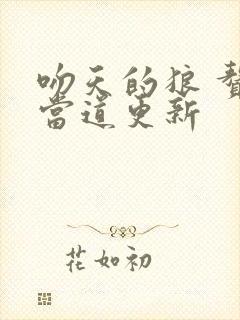 吻天的狼 贅
當道更新
花如初